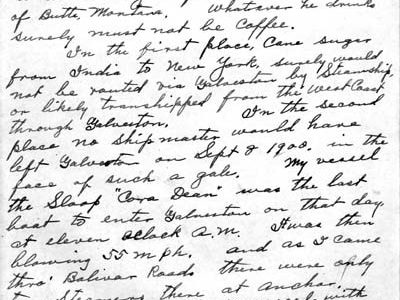 of Butte, Montana. Whatever he drinks
surely must not be Coffee.
In the first place, Cane sugar
from India to New York, surely would
not be routed via Galveston by Steamship,
or likely transhipped from the West Coast
through Galveston. In the second
place no Ship master would have
left Galveston on Sept 8 1900. in the
face of such a gale. My vessel
the Sloop "Cora Dean" was the last
boat to enter Galveston on that day.
at eleven oclock A.M. It was then
blowing 55 M.P.h. and as I came
thro' Bolivar Roads there were only
Steamers there at anchor.
with